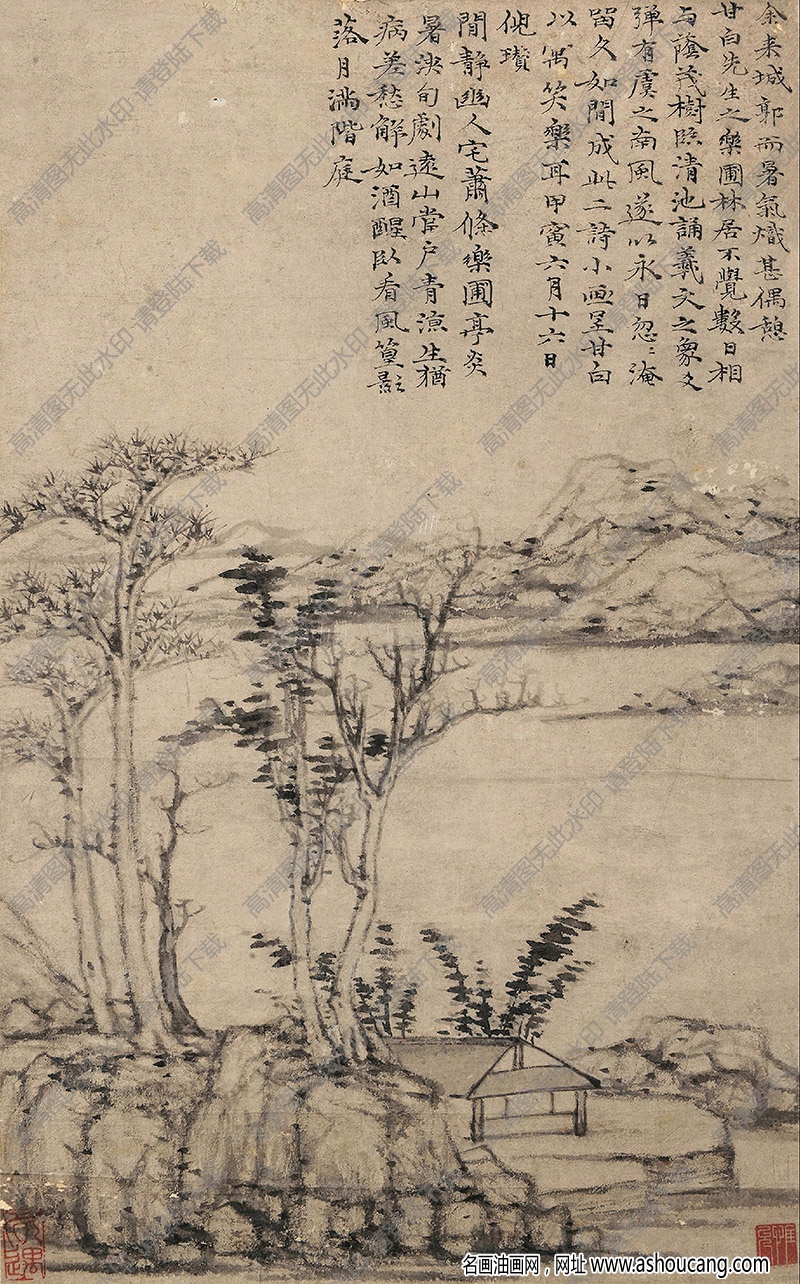 余来城郭而暑氣熾甚偶憩
甘白先生之樂圃林居不覺數日相
与蔭茂樹臨清池誦羲文之象爻
彈有虞之南風遂以永日忽〻淹
留久如間成此二詩小画呈甘白
以寓笑樂耳甲寅六月十六日
倪瓚
閒静幽人宅蕭條樂圃亭炎
暑浹旬劇遠山當户青涼生猶
病差愁解如酒醒卧看風篁影
落月満階庭
高清图无此水印·请登陆下载
名画油画网，网址 www.ashoucang.com